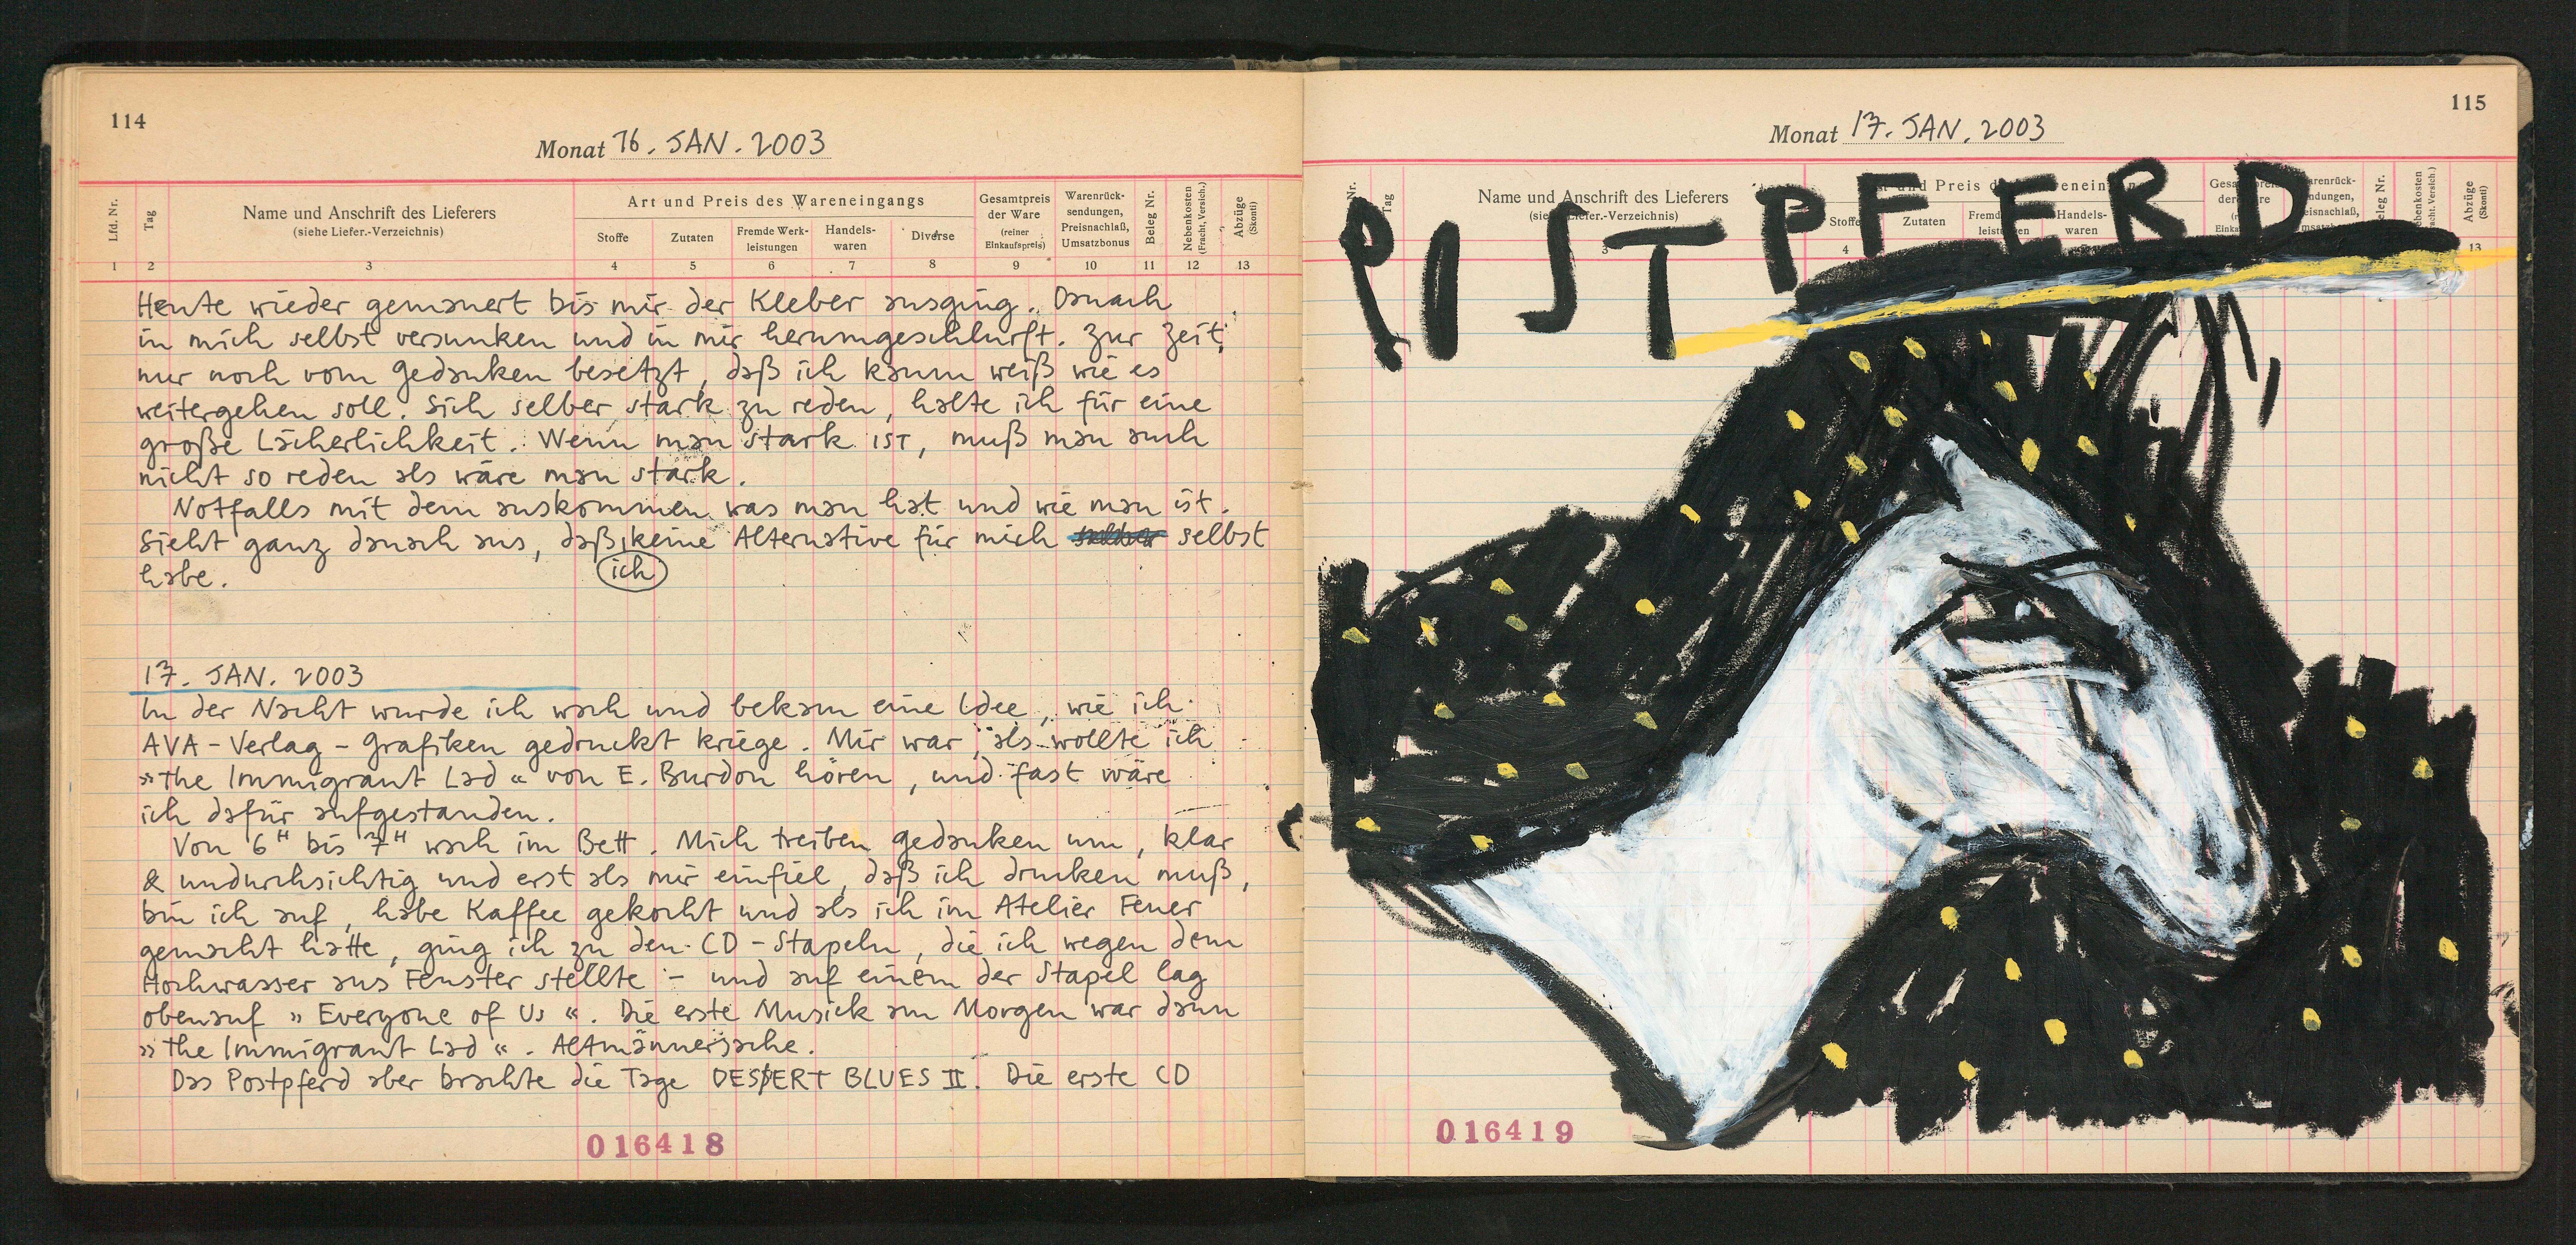 114
Monat 16. JAN. 2003
Lfd. Nr.
Tag
Name und Anschrift des Lieferers
(siehe Liefer.-Verzeichnis)
Art und Preis des Wareneingangs
Stoffe
Zutaten
Fremde Werk-
leistungen
Handels-
waren
Diverse
Gesamtpreis
der Ware
(reiner
Einkaufspreis)
Warenrück-
sendungen,
Preisnachlaß,
Umsatzbonus
Beleg Nr.
Nebenkosten
(Fracht, Versich.)
Abzüge
(Skonti)
1 2 3 4 5 6 7 8 9 10 11 12 13
Heute wieder gemauert bis mir der Kleber ausging. Danach
in mich selbst versunken und in mir herumgeschlurft. Zur Zeit
nur noch vom Gedanken besetzt, daß ich kaum weiß wie es
weitergehen soll. Sich selber stark zu reden, halte ich für eine
große Lächerlichkeit. Wenn man stark IST, muß man auch
nicht so reden als wäre man stark.
Notfalls mit dem auskommen was man hat und wie man ist.
Sieht ganz danach aus, daß keine Alternative für mich selbst
ich
habe.
17. JAN. 2003
In der Nacht wurde ich wach und bekam eine Idee, wie ich
AVA-Verlag-Grafiken gedruckt kriege. Mir war, als wollte ich
»The Immigrant Lad« von E. Burdon hören, und fast wäre
ich dafür aufgestanden.
Von 6H bis 7H wach im Bett. Mich treiben Gedanken um, klar
& undurchsichtig und erst als mir einfiel, daß ich drucken muß,
bin ich auf, habe Kaffee gekocht und als ich im Atelier Feuer
gemacht hatte, ging ich zu den CD-Stapeln, die ich wegen dem
Hochwasser ans Fenster stellte - und auf einem der Stapel lag
obenauf »Everyone of Us«. Die erste Musick am Morgen war dann
»The Immigrant Lad«. Altmännersache.
Das Postpferd aber brachte die Tage DESERT BLUES II. Die erste CD
016418
115
Monat 17. JAN. 2003
Tag
Name und Anschrift des Lieferers
Zutaten
Handels-
waren
Abzüge
(Skonti)
13
POSTPFERD
016419